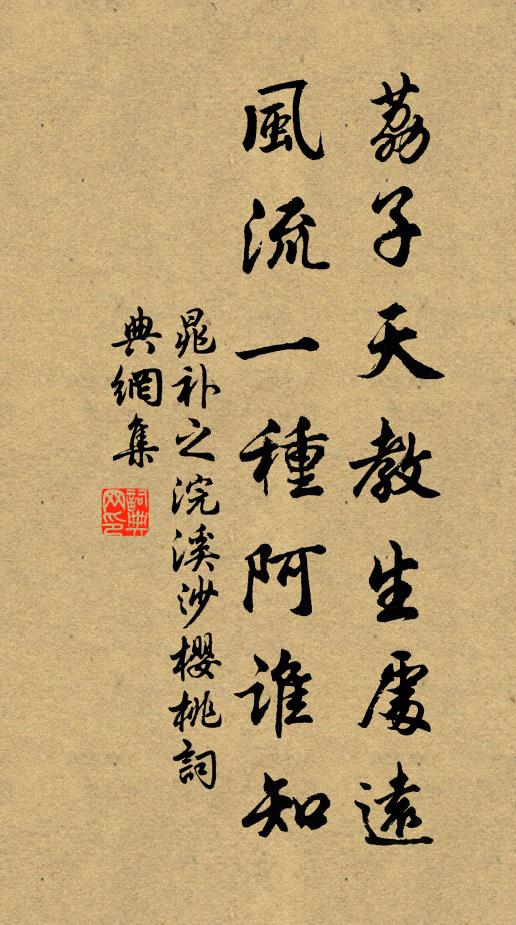 荔子天教生處遠
風流一種阿誰知
晁补之浣溪沙櫻桃詞
典網集
詞典網印